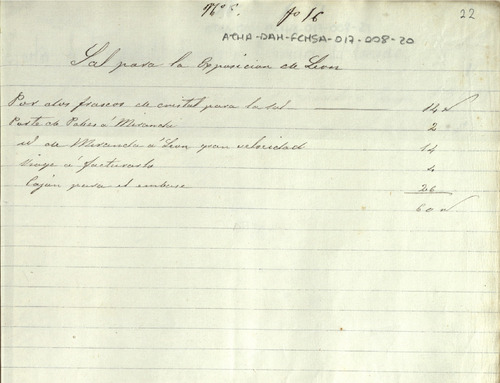 Nº 8. fº 16 22
ATHA-DAH-FCMSA-017-008-20
Sal para la Exposicion de Leon
Por dos frascos de cristal para la sal 14
Porte de Pobes á Miranda 2
id de Miranda á Leon gran velocidad 14
Viaje á facturarla 4
Cajon para el embase 26
60